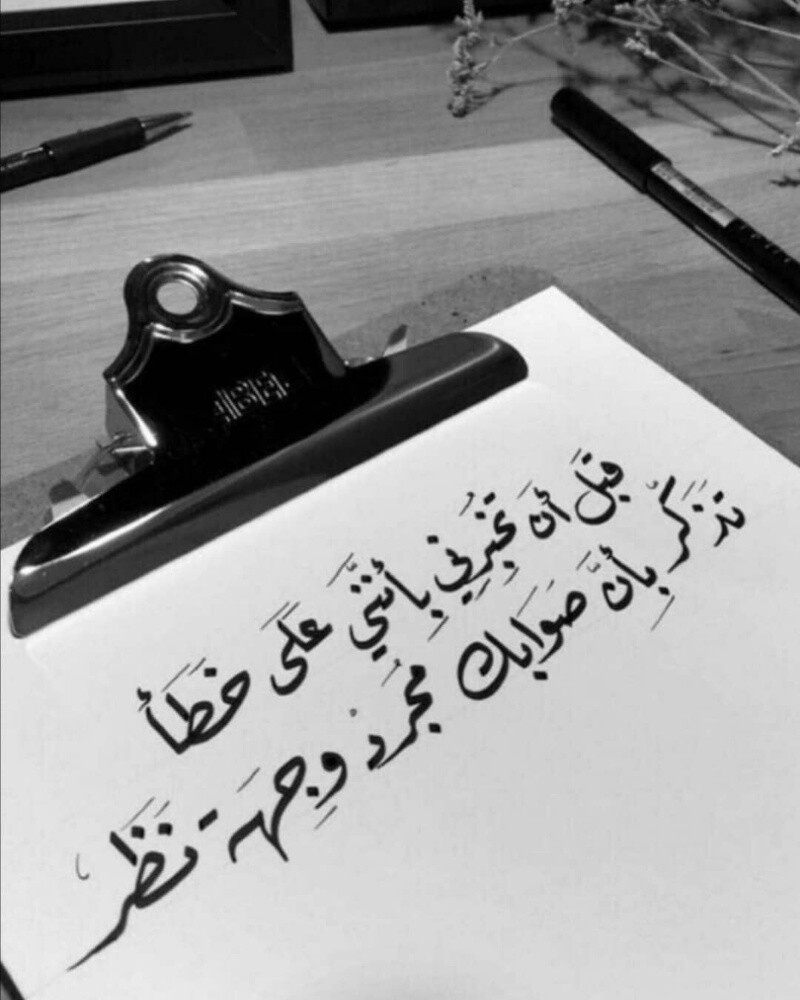 قَبلَ أَن تُخْبِرني بِأنَّني عَلَى خَطَأ
تذَكَّر بِأنَّ صَوَابك مُجَرد وِجهَة نَظَر